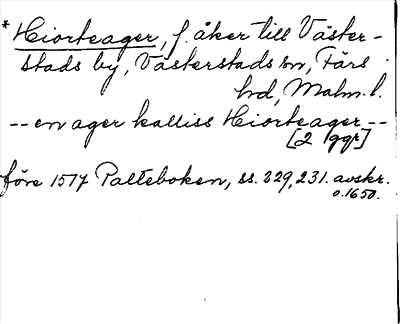 * Hiorteager, f. åker till Väster-
stads by, Västerstads sn, Färs
hd, Malm. l.
-- en ager kalliss Hiorteager --
[2 ggr]
före 1517 Palteboken, ss. 229, 231. avskr.
o. 1650.